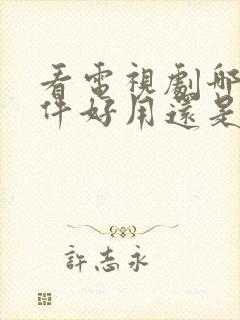 看電視劇哪
件好用還是
許志永